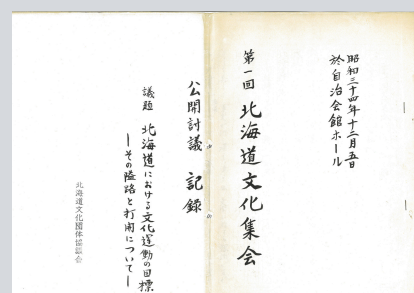 昭和三十四年十二月五日
於自治会館ホール
第一回 北海道文化集会
公開討議 記録
議題 北海道における文化運動の目標
―その隘路と打開について―
北海道文化団体協議会